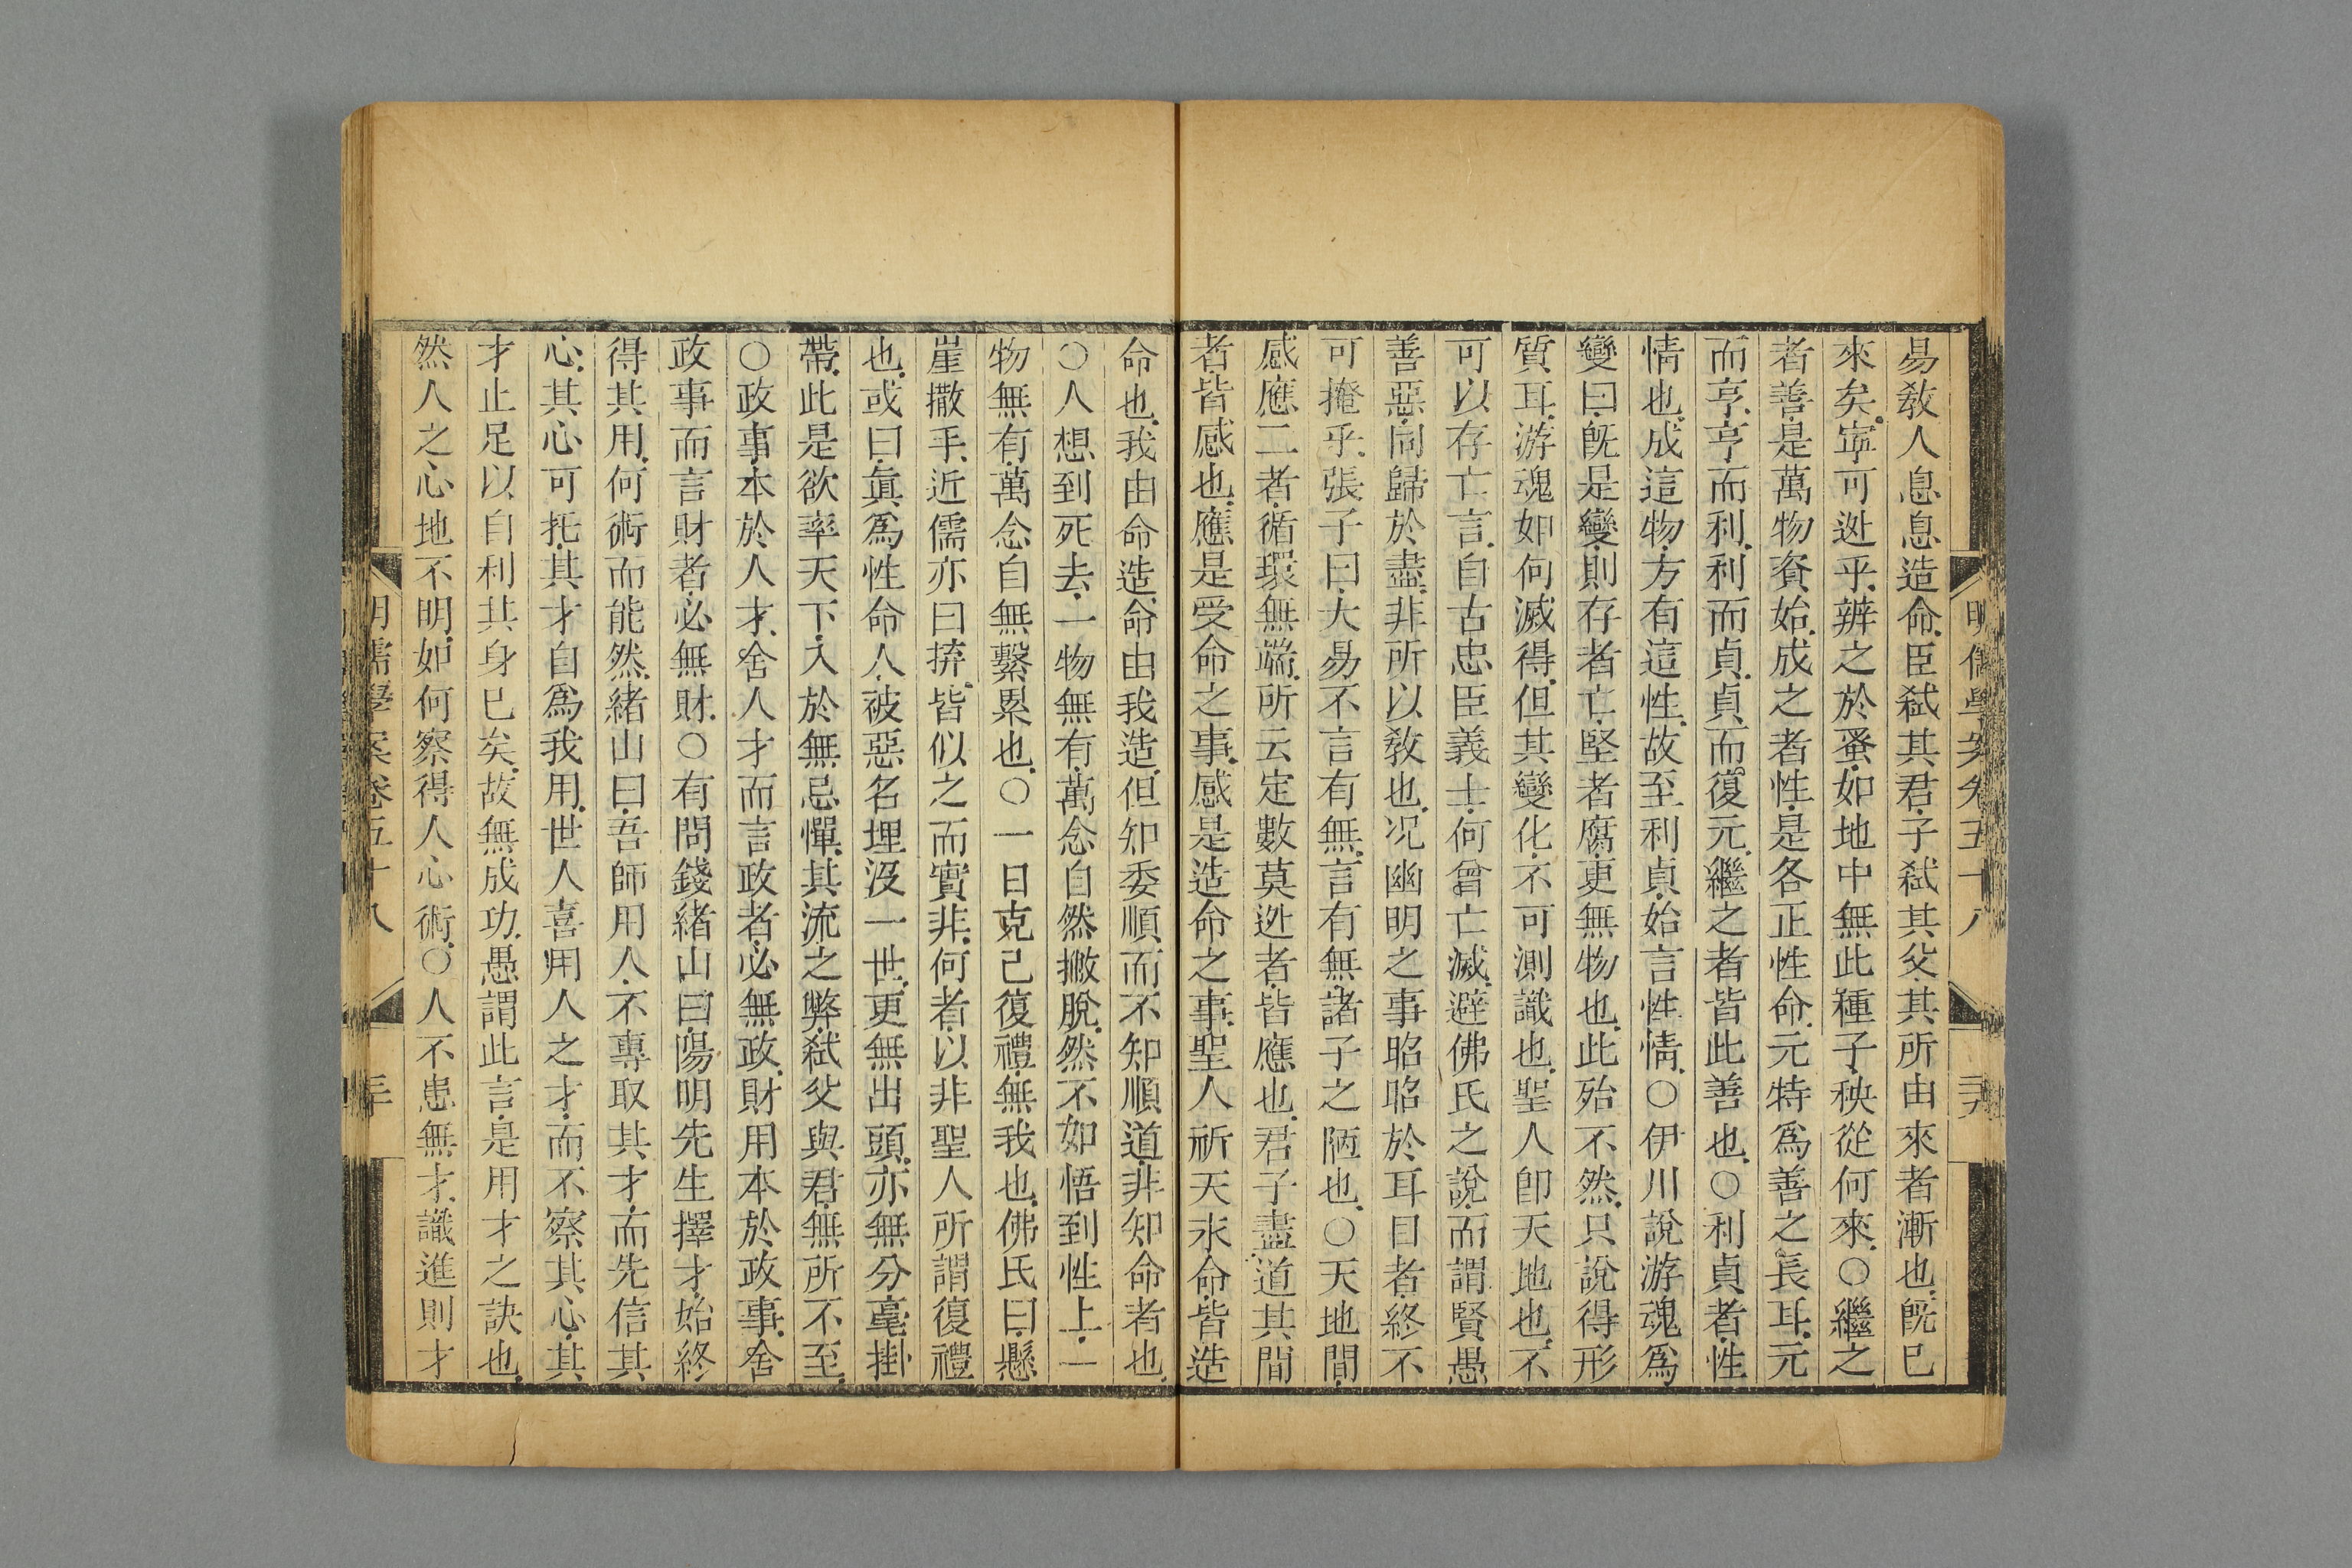 易敎人息息造命臣弑其君子弑其父其所由來者漸也旣已
來矣寜可迯乎辨之於蚤如地中無此種子秧從何來○繼之
者善是萬物資始成之者性是各正性命元特爲善之長耳元
而亨亨而利利而貞貞而復元繼之者皆此善也○利貞者性
情也成這物方有這性故至利貞始言性情○伊川說游魂爲
變曰旣是變則存者亡堅者腐更無物也此殆不然只說得形
質耳游魂如何滅得但其變化不可測識也聖人卽天地也不
可以存亡言自古忠臣義士何曾亡滅避佛氏之說而謂賢愚
善惡同歸於盡非所以敎也况幽明之事昭昭於耳目者終不
可掩乎張子曰大易不言有無言有無諸子之陋也○天地間
感應二者循環無端所云定數莫迯者皆應也君子盡道其間
者皆感也應是受命之事感是造命之事聖人祈天永命皆造
命也我由命造命由我造但知委順而不知順道非知命者也
○人想到死去一物無有萬念自然撇脫然不如悟到性上一
物無有萬念自無繫累也○一日克己復禮無我也佛氏曰懸
崖撒手近儒亦曰拚皆似之而實非何者以非聖人所謂復禮
也或曰眞爲性命人被惡名埋沒一世更無出頭亦無分毫掛
帶此是欲率天下入於無忌憚其流之弊弑父與君無所不至
○政事本於人才舍人才而言政者必無政財用本於政事舍
政事而言財者必無財○有問錢緒山曰陽明先生擇才始終
得其用何術而能然緒山曰吾師用人不專取其才而先信其
心其心可托其才自爲我用世人喜用人之才而不察其心其
才止足以自利其身已矣故無成功愚謂此言是用才之訣也
然人之心地不明如何察得人心術○人不患無才識進則才
明儒學案卷五十八